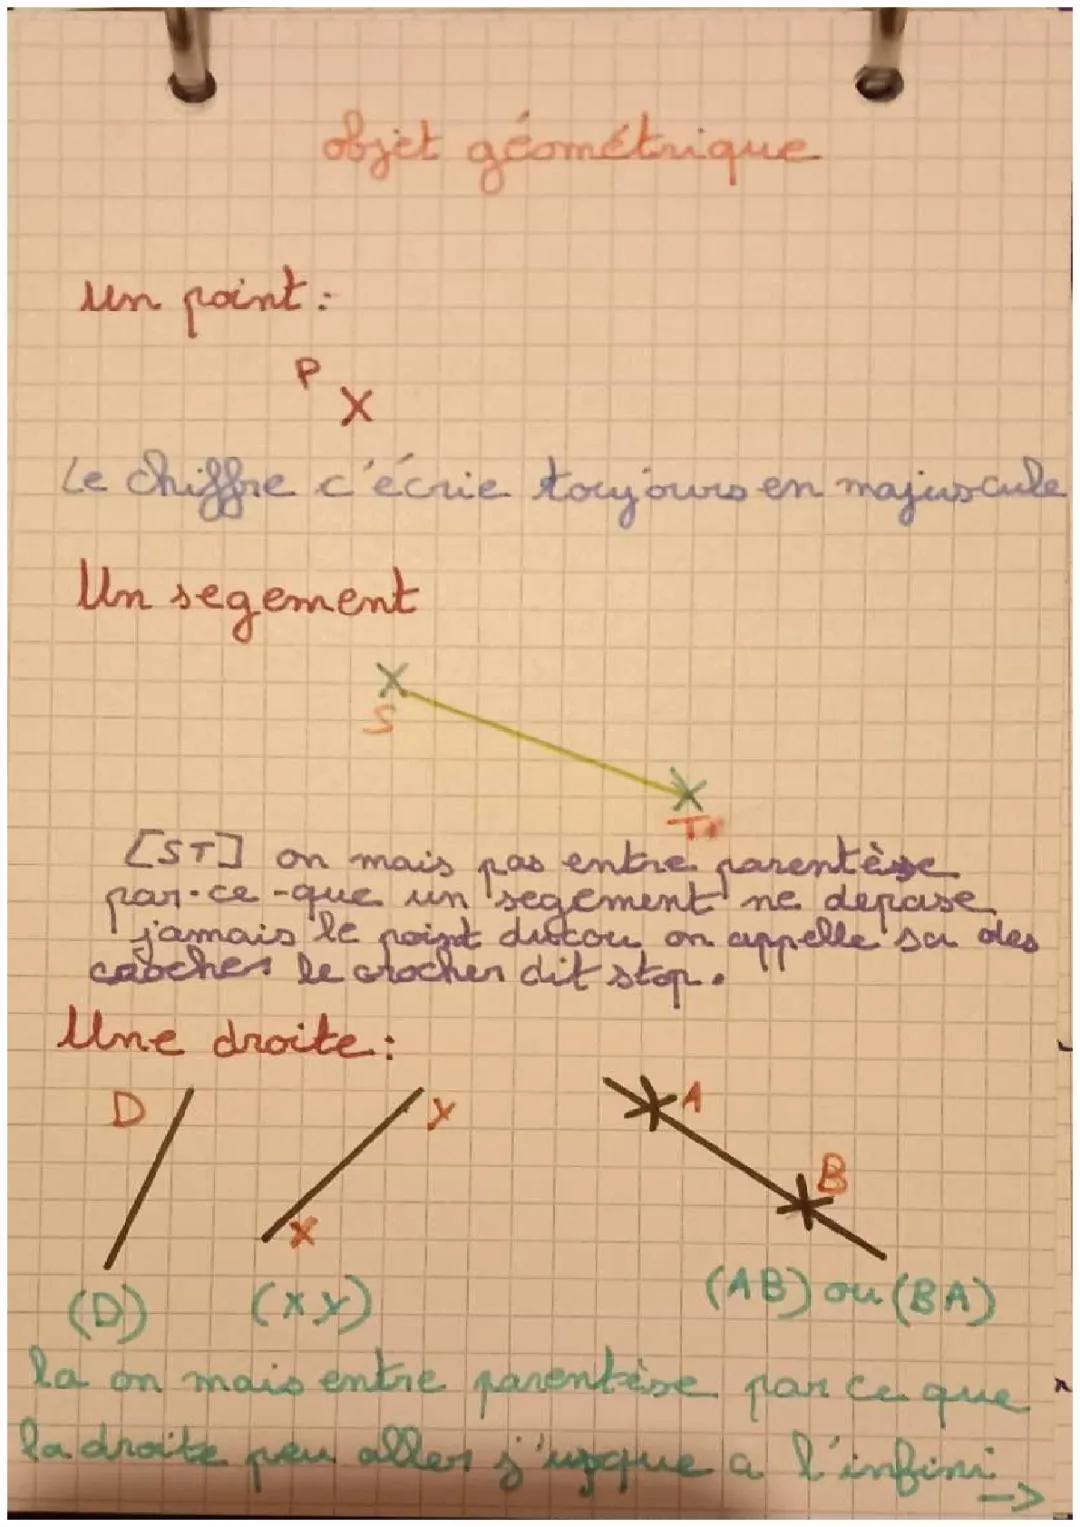 objet géométrique
Un point :
P
Le chiffre c'écrie toujours en majuscule
Un segement
S
T
[ST] on mais pas entre parentèse
par-ce-que un segement ne depase
jamais le point ducou on appelle sa des
croches le crocher dit stop.
Une droite :
D
y
A
x
B
(D) (xy) (AB) ou (BA)
la on mais entre parentèse par ce que
la droite peu aller j'usque a l'infini